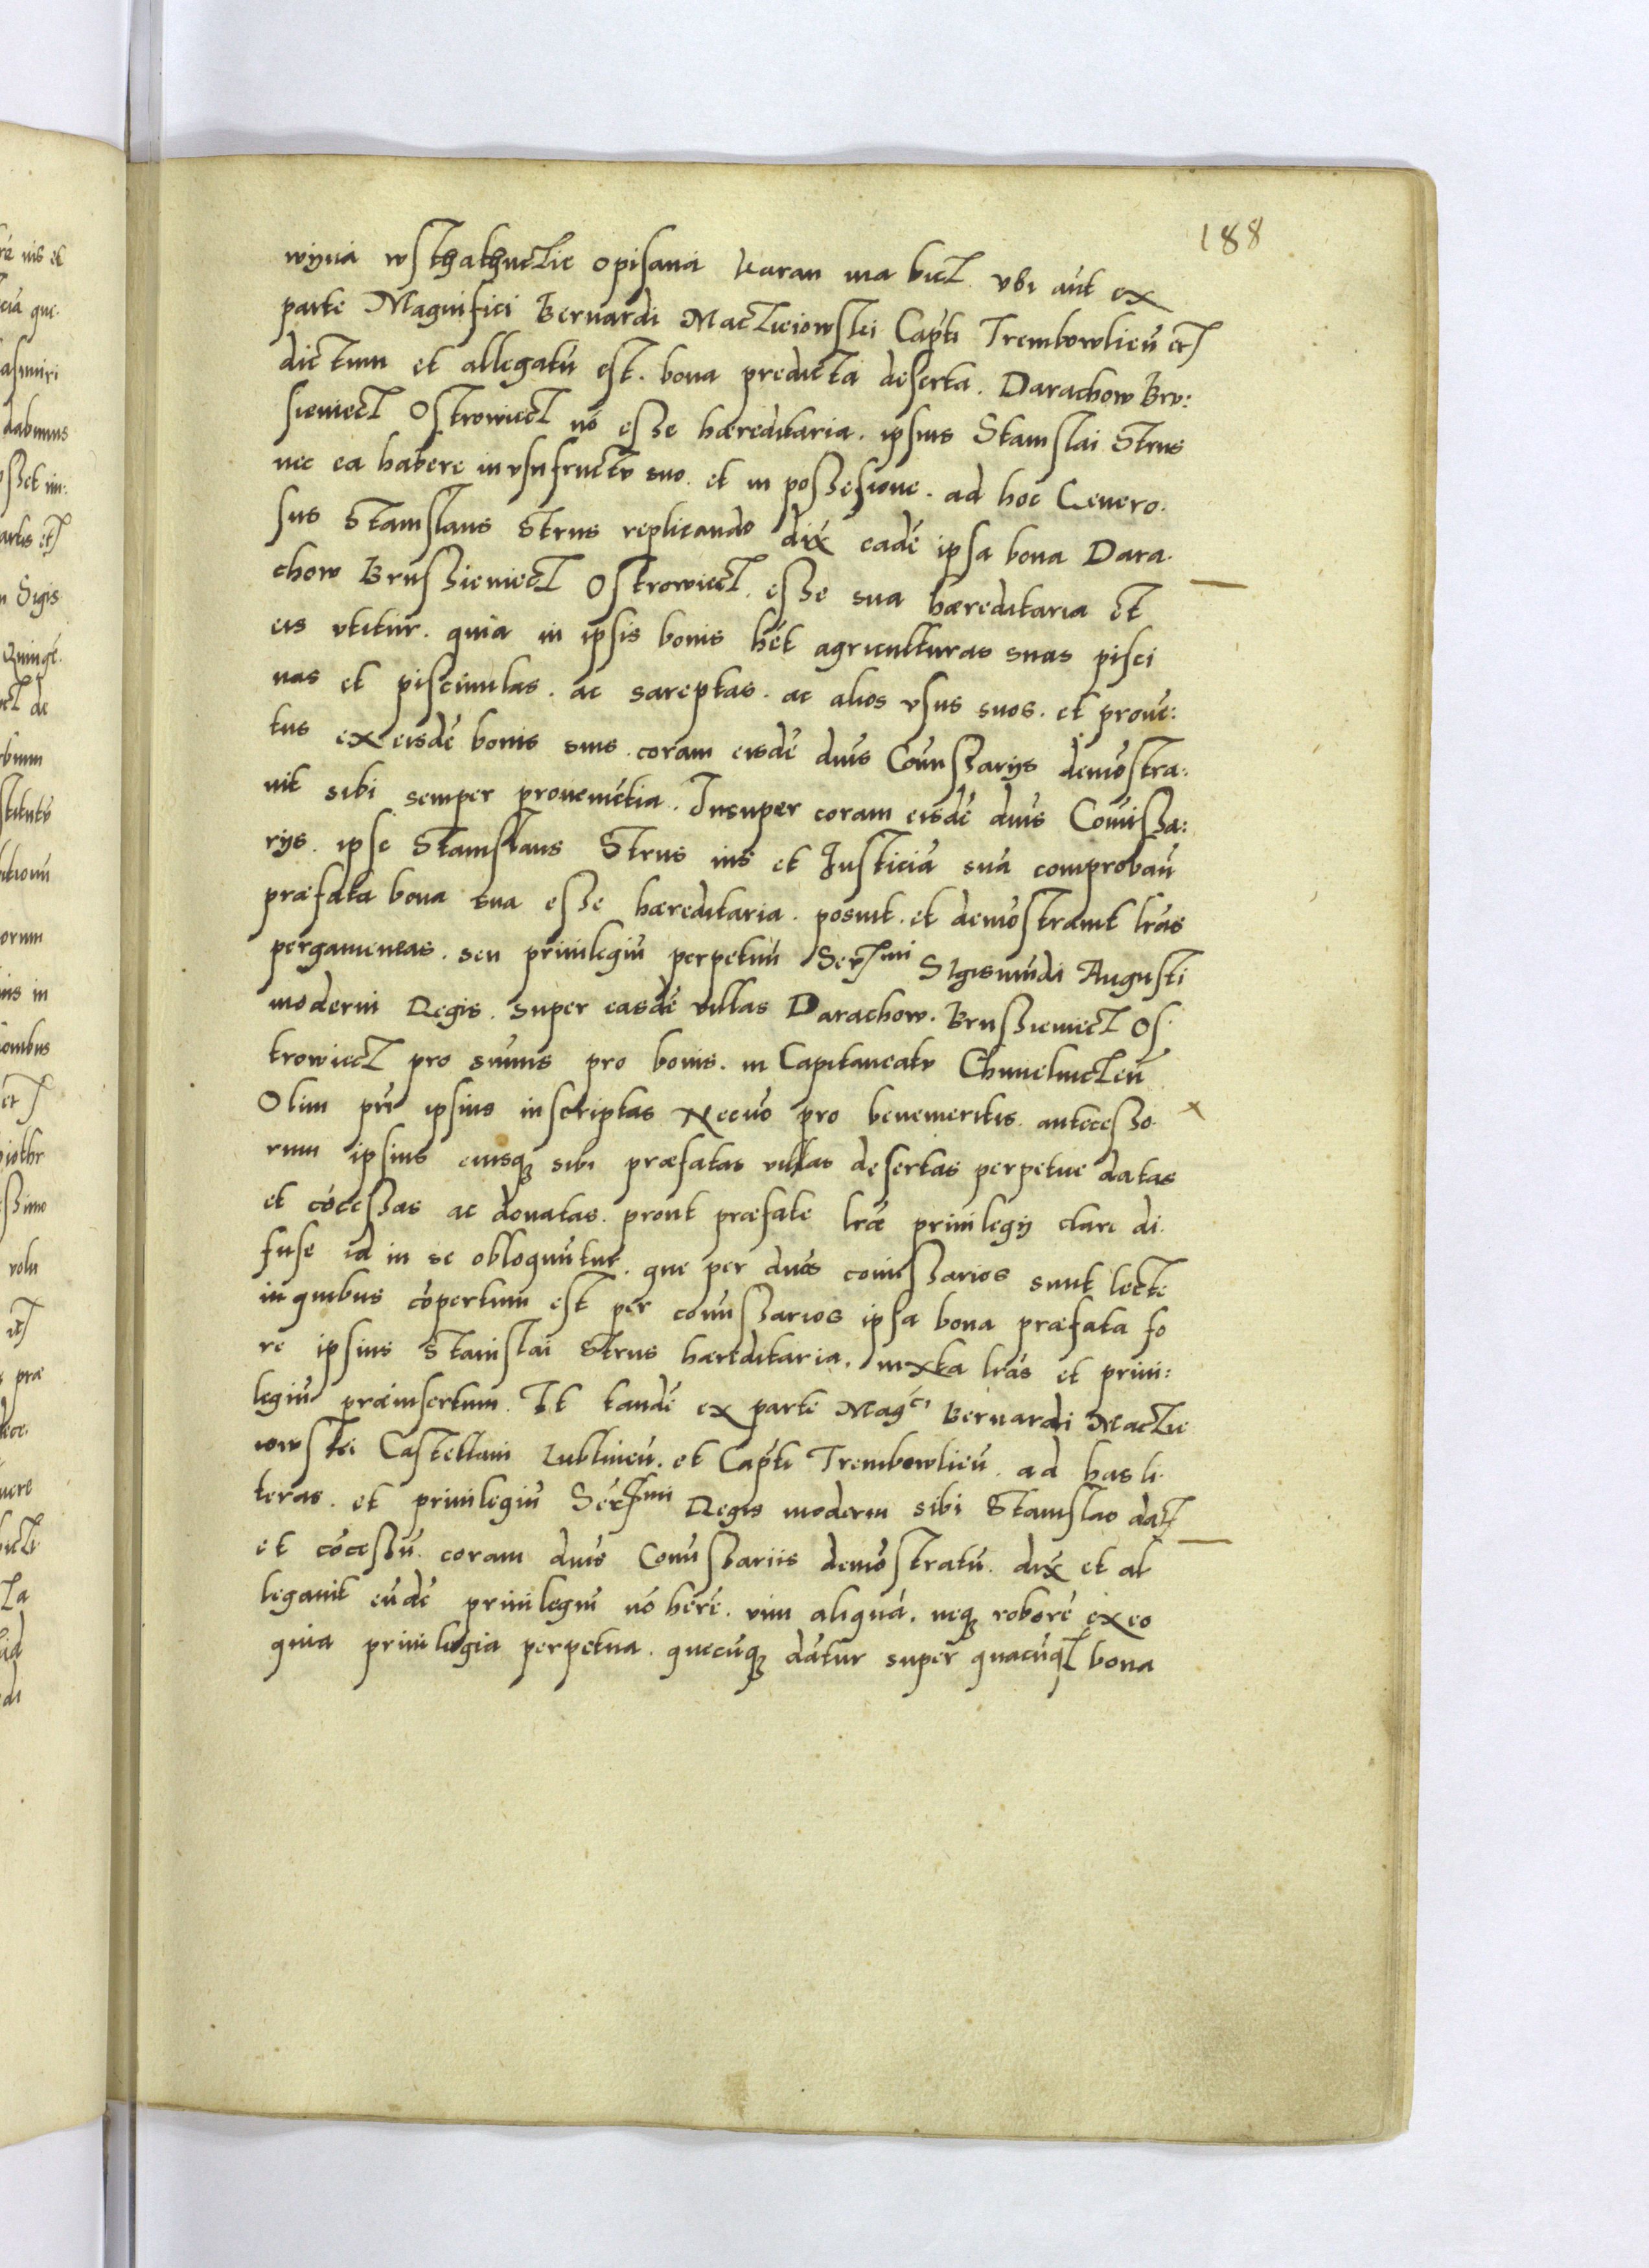 188
wijna wsthathuczie opisana karan ma bicz. vbi aūt ex
parte Magnifici Bernardi Macziciowskei Capti̅ Trembowlien̄ etc
dictum et allegatū est. bona predicta deserta. Darachow Bru:
sieniecz Ostrowiecz nō esse hæreditaria. ipsius Stanislai Strus
nec ea habere in vsufructu suo. et in possesione. ad hoc Genero.
sus Stanislaus Strus replicando dix̄ eadē ipsa bona Dara.
chow Brussieniecz Ostrowiecz. esse sua hæreditaria et
eis vtitur. quia in ipsis bonis hēt agriculturas suas pisci
nas et piscinulas. ac sareptas. ac alios vsus suos. et prouē:
tus ex eisdē bonis suis. coram eisdē dnis Comissarijs demōstra:
uit sibi semper prouenictia. Insuper coram eisdē dnis Comissa:
rijs. ipse Stanislaus Strus ius et Justiciā suā comprobaū
præfata bona sua esse hæreditaria. posuit. et demōstrauit lras
pergameneas. seu priuilegiū perpetuū Sermi Sigismūdi Augusti
moderni Regis. super easdē villas Darachow. Brussieniecz Os.
trowiecz pro sum̄is pro bonis. in Capitaneatu Chmelniczen̄
Olim pri̅s ipsius inscriptas Necnō pro benemeritis. antecesso.
rum ipsius eiusq; sibi præfatas villas desertas perpetue datas
et cōcessas ac donatas. prout præfate lræ priuilegij clare di.
fuse id in se obloquūtur. que per dnos comissarios sunt lecte
in quibus cōpertum est per comissarios ipsa bona præfata fo
re ipsius Stanislai Strus hæreditaria. iuxta lras et priui:
legiū præinsertum. It tandē ex parte Magci Bernardi Maczie
iowskei Castellani Lublinen̄. et Capti̅ Trembowlien̄. ad has li.
teras. et priuilegiū Sermi Regis moderni sibi Stanislao dat
et cōcessū. coram dnis Comissariis demōstratū. dix̄ et al
legauit eūdē priuilegiū nō hēre. vim aliquā. neq; roborē ex eo
quia priuilegia perpetua. quecūq; dātur super quacūq; bona